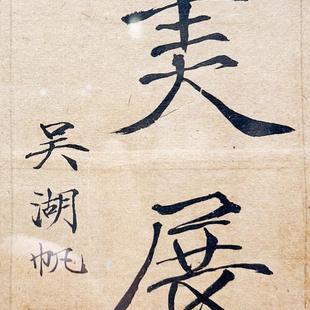 美展
吴湖帆